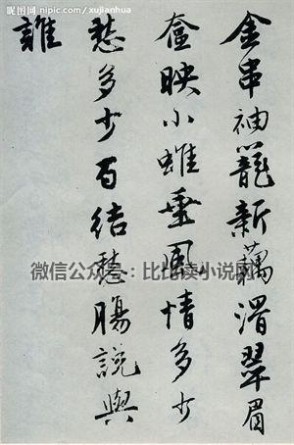 昵图网 nipic.com/xujianhua
金串袖籠新藕滑翠眉
奩映小蛾垂風情多少
愁多少百結愁腸說與
誰
微信公众号：比比读小说网